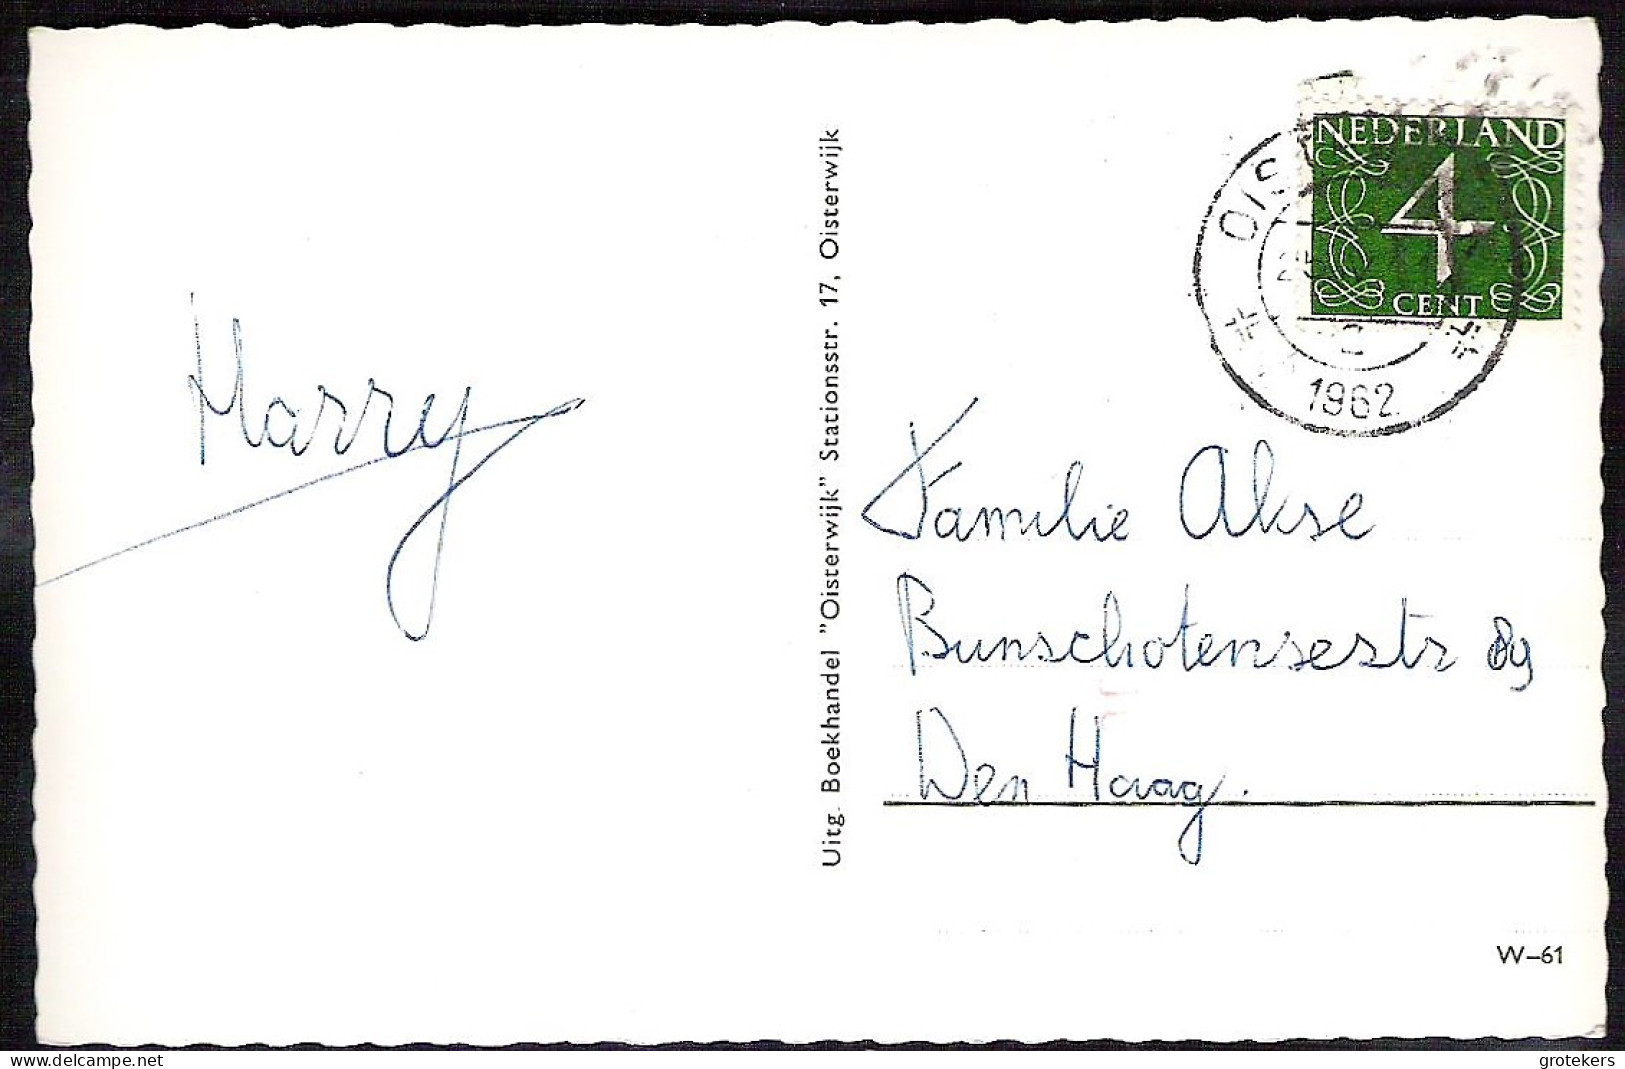 NEDERLAND
4
CENT
1962
Harry
Uitg. Boekhandel "Oisterwijk" Stationsstr. 17, Oisterwijk
Familie Akse
Bunschotensestr 89
Den Haag.
W-61
delcampe.net
grotekers